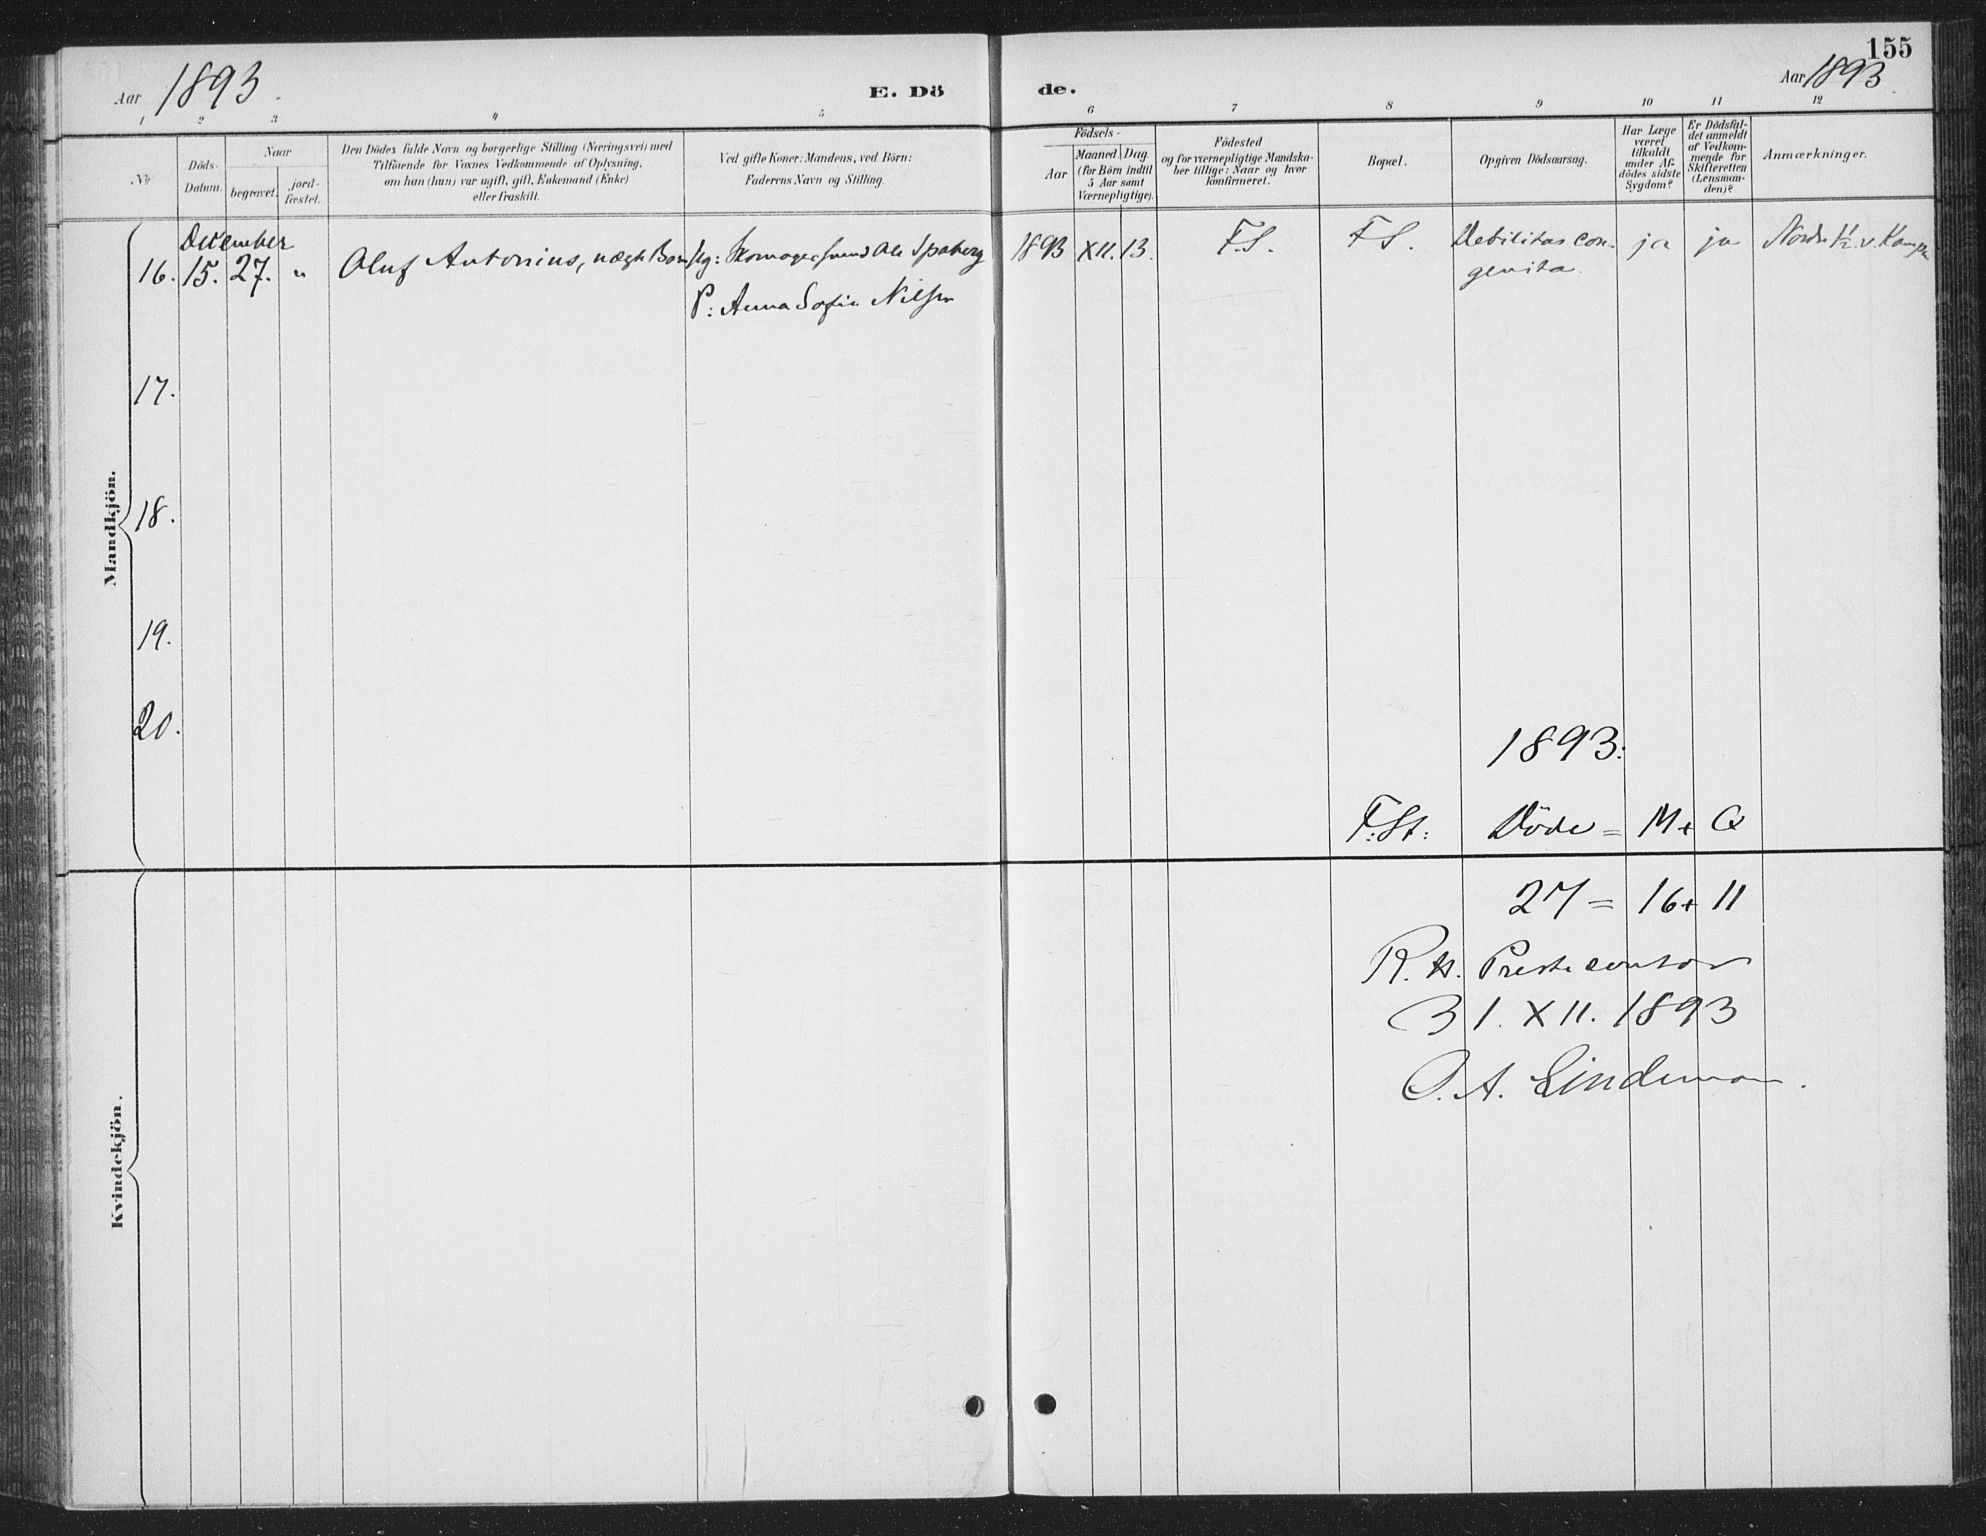 155
Aar 1893.
E. Dö
de.
Aar 1893.
1 2 3 4 5 6 7 8 9 10 11 12
No
Döds-
Datum.
Naar
begravet.
jord-
fæstet.
Den Dödes fulde Navn og borgerlige Stilling (Næringsvei) med
Tilföiende for Voxnes Vedkommende af Oplysning,
om han (hun) var ugift, gift, Enkemand (Enke)
eller fraskilt.
Ved gifte Koner: Mandens, ved Börn:
Faderens Navn og Stilling.
Födsels-
Aar
Maaned. Dag
(for Börn indtil
5 Aar samt
Værnepligtige).
Födested
og for værnepligtige Mandska-
ber tillige: Naar og hvor
konfirmeret.
Bopæl.
Opgiven Dödsaarsag.
Har Læge
været
tilkaldt
under Af-
dödes sidste
Sygdom?
Er Dödsfal-
det anmeldt
af Vedkom-
mende for
Skifteretten
(Lensman-
den)?
Anmærkninger.
Mandkjön.
December
16. 15. 27. " Oluf Antonius, uægte Barn Ole 1893 XII. 13. F.S. F.S. Debilitas con- ja ja
P: Anna Sofie Nilsen genita.
17.
18.
19.
20.
1893:
F.St: Döde = M + Q
Kvindekjön.
27 = 16 + 11
Prestecontor
31. XII. 1893
O. A. Lindeman.